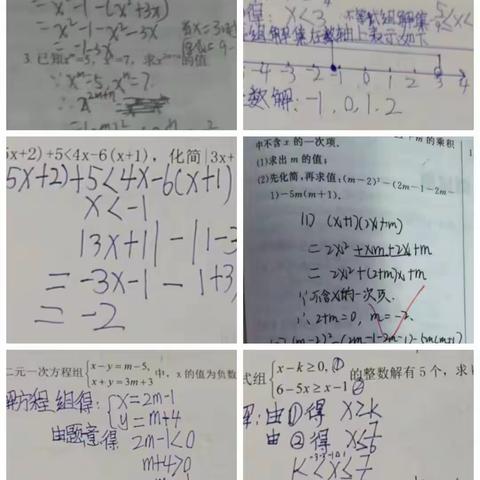 = x²-1-(x²+3x)
= x²-1-x²-3x
= -1-3x
3. 已知xᵐ=5, xⁿ=7, 求x²ᵐ⁺ⁿ的值
∵ xᵐ=5, xⁿ=7
∴ x²ᵐ⁺ⁿ
x<3
不等式组解集
组解集在数轴上表示如下
-4 -3 -2 -1 0 1 2 3 4
数解: -1, 0, 1, 2
5x+2)+5<4x-6(x+1), 化简|3x+
5x+2)+5<4x-6(x+1)
x<-1
|3x+1|-|1-3
= -3x-1-1+3
= -2
中不含x的一次项.
(1)求出m的值;
(2)先化简,再求值:(m-2)²-(2m-1-2m-
1)-5m(m+1).
(1) (x+1)(2x+m)
= 2x²+xm+2x+m
= 2x²+(2+m)x+m
∵不含x的一次项
∴ 2+m=0, m=-2
二元一次方程组{x-y=m-5, x+y=3m+3 中,x的值为负数
解方程组得:{x=2m-1
y=m+4
由题意得 2m-1<0
m+4>0
式组{x-k≥0,① 6-5x≥x-1② 的整数解有5个,求
解:由①得 x≥k
由②得 x≤7/6